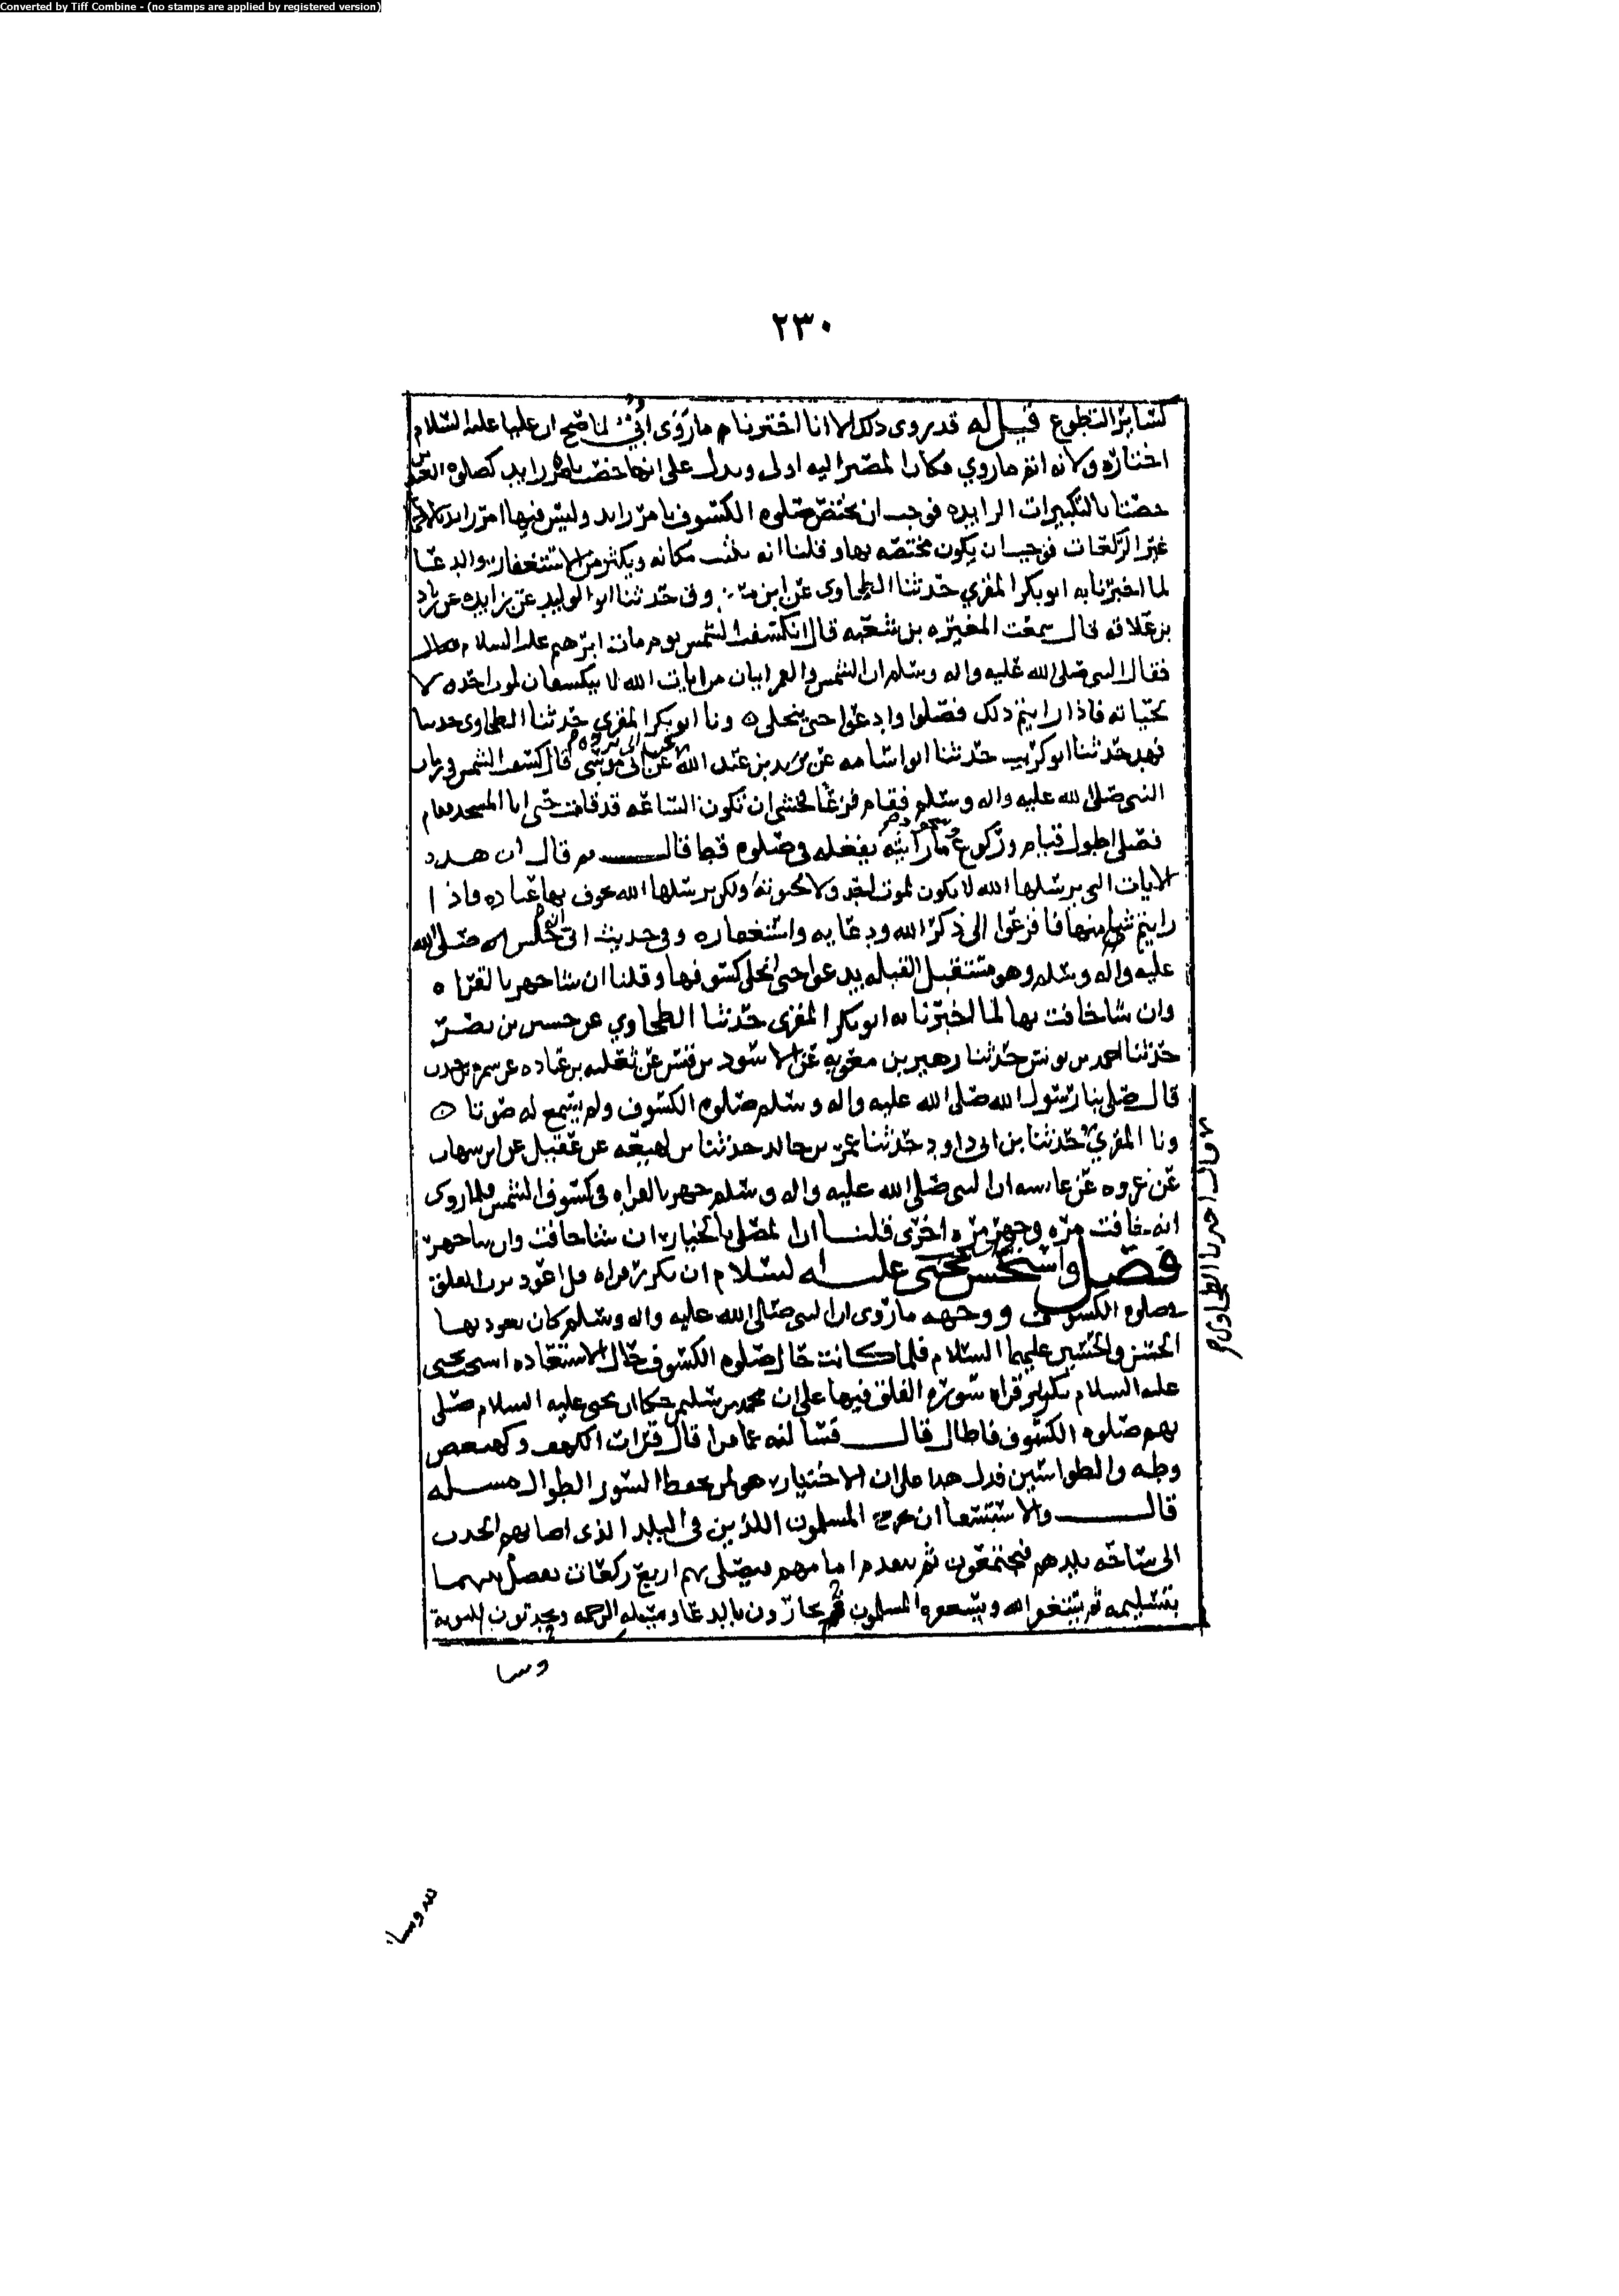 Converted by Tiff Combine - (no stamps are applied by registered version)
٢٣٠
كسائر التطوع قيل له قد روى ذلك الا انا اخترنا ما روى ابي لما صح ان عليا عليه السلام
اختاره ولانه اتم ما روي فكان المصير اليه اولى ويدل على انها خصت بامر زايد كصلوه العيد
خصتا بالتكبيرات الزايده فوجب ان يختص صلوه الكسوف بامر زايد وليس فيها امر زايد
غير الركعات فوجب ان يكون مختصه بها وقلنا انه يلبث مكانه ويكثر من الاستغفار والدعا
لما اخبرنا به ابو بكر المقري حدثنا الطحاوى عن ابن حدثنا ابو الوليد عن زايده عن زياد
بن علاقه قال سمعت المغيره بن شعبه قال انكسفت الشمس يوم مات ابرهيم عليه السلام
فقال النبي صلى الله عليه واله وسلم ان الشمس والقمر ايتان من ايات الله لا ينكسفان لموت احد ولا
لحياته فاذا رايتم ذلك فصلوا وادعوا حتى ينجلي ونا ابو بكر المقري حدثنا الطحاوى حدثنا
فهد حدثنا ابو كريب حدثنا ابو اسامه عن بريد بن عبد الله عن ابي موسى قال كسفت الشمس في زمان
النبي صلى الله عليه واله وسلم فقام فزعا يخشى ان تكون الساعه قد قامت حتى اتا المسجد فقام
فصلى اطول قيام وركوع وسجود ما رايته يفعله في صلوه قط قال ثم قال ان هذه
الايات التي يرسلها الله لا يكون لموت احد ولا لحيوته ولكن يرسلها الله يخوف بها عباده فاذا
رايتم شيا منها فافزعوا الى ذكر الله ودعايه واستغفاره وفي حديث صلى الله
عليه واله وسلم وهو مستقبل القبله يدعوا حتى انجلى كسوفها وقلنا ان شا جهر بالقراه
وان شا خافت بها لما اخبرنا به ابو بكر المقري حدثنا الطحاوي عن حسين بن نصر
حدثنا احمد بن يونس حدثنا زهير بن معويه عن الاسود بن قيس عن ثعلبه بن عباده عن سمره بن جندب
قال صلى بنا رسول الله صلى الله عليه واله وسلم صلوه الكسوف ولم يسمع له صوتا
ونا المقري حدثنا بن ابي داود حدثنا عمر بن خالد حدثنا بن لهيعه عن عقيل عن ابن شهاب
عن عروه عن عايشه ان النبي صلى الله عليه واله وسلم جهر بالقراه في كسوف الشمس فلما روى
انه خافت مره وجهر مره اخرى قلنا ان المصلي بالخيار ان شا خافت وان شا جهر
فصل واستحسن يحيى عليه السلام ان يكرر قراه قل اعوذ برب الفلق
في صلوه الكسوف ووجهه ما روى ان النبي صلى الله عليه واله وسلم كان يعوذ بها
الحسن والحسين عليهما السلام فلما كانت حال صلوه الكسوف حال الاستعاذه استحب يحيى
عليه السلام تكرير قراه سوره الفلق فيها على ان محمد بن سليمن حكا ان يحيى عليه السلام صلى
بهم صلوه الكسوف فاطال قال فسالته عما قرا قال قرات الكهف وكهيعص
وطه والطواسين فدل هذا على ان الاختيار هو لمن يحفظ السور الطوال مسله
قال والاستسقا ان يخرج المسلمون اللذين في البلد الذي اصابهم الجدب
الى ساحه بلدهم فيجتمعون ثم يتقدم امامهم فيصلي بهم اربع ركعات يفصل بينهما
بتسليمه ثم يستغفر الله ويستغفره المسلمون ويجارون بالدعا ومسله الرحمه ويجددون التوبة
وقال اخبرنا الطحاوي
وسا